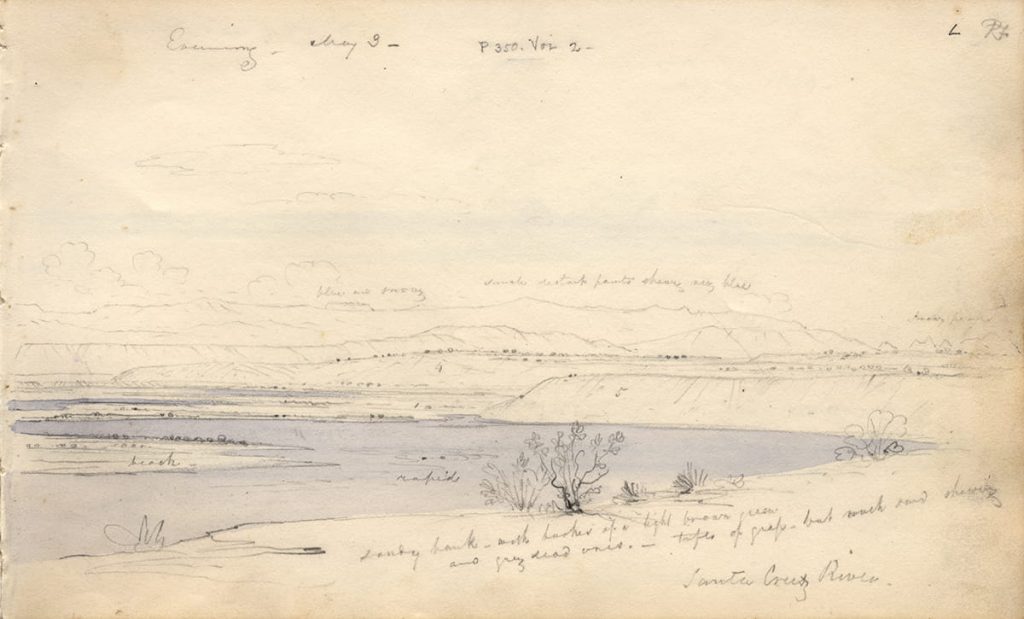 Evening - May 3 -
P 350. Vol 2 -
L
blue and snowy
small distant points shewing very blue
snowy points
9
6 3
5
1
beach
rapid
sandy bank - with bushes of a light brown green
and grey dead ones. - tufts of grass - but much sand shewing
Santa Cruz River.